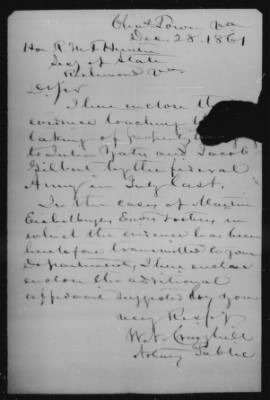 Chas Town Va
Dec. 28. 1861
Hon R. M. T. Hunter
Secy of State
Richmond Va
D. Sir
I here enclose the
evidence touching the
taking of property
to John Yates and Jacob
Gilbert by the federal
Army in July last.
In the cases of Martin
Eichelberger,
which the evidence has been
heretofore transmitted to your
Department, I here enclose
the additional
affidavit suggested by you
very Respy
W. N. Craighill
Notary Public